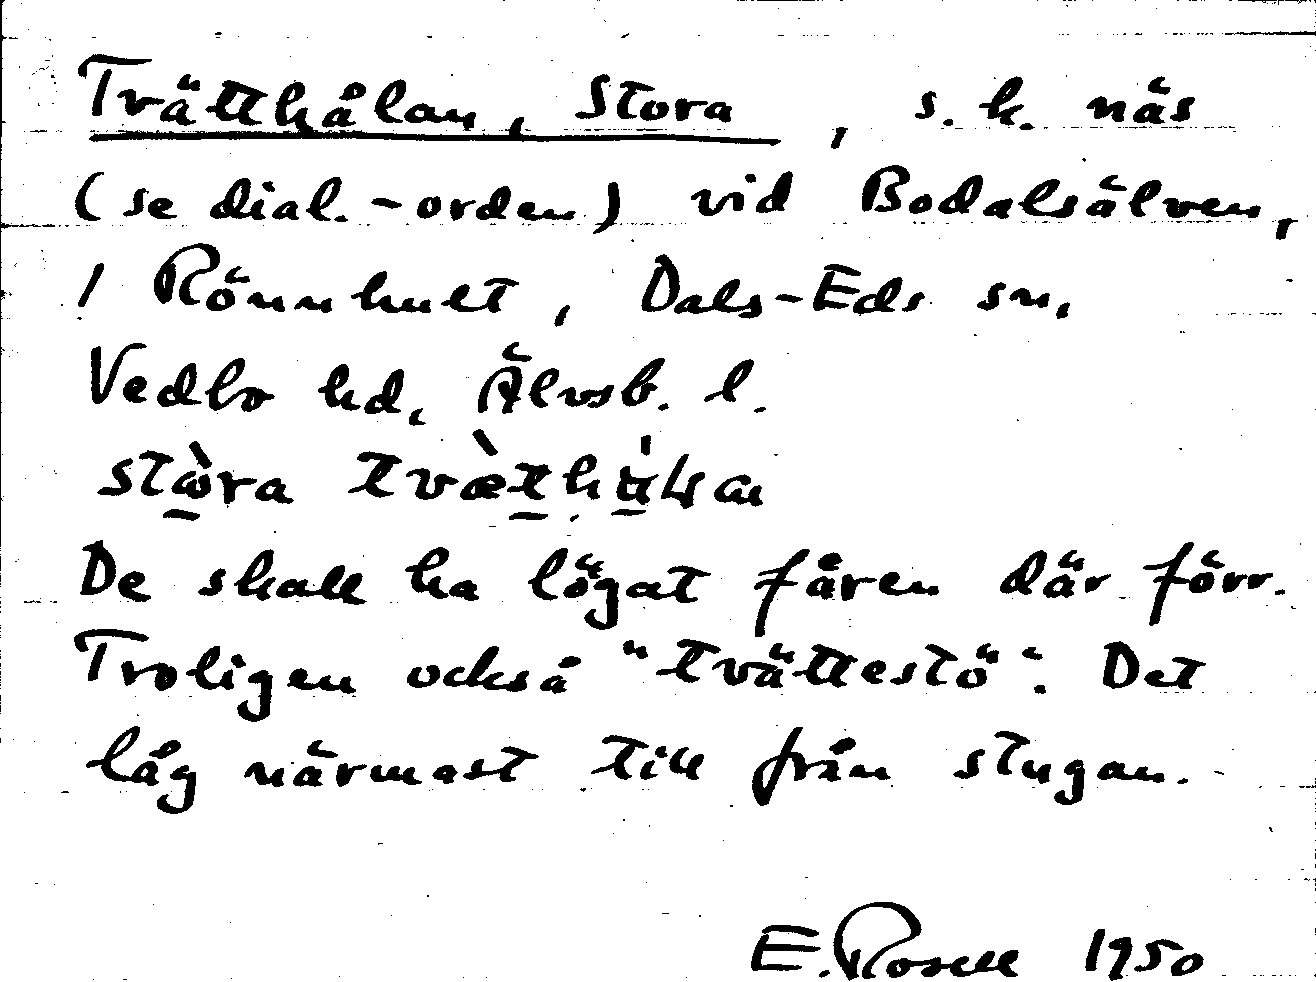 Tvätthålan, Stora, s. k. näs
(se dial.-orden) vid Bodalsälven,
i Rönnhult, Dals-Eds sn,
Vedbo hd, Älvsb. l.
stora
De skall ha lögat fåren där förr.
Troligen också "tvättestö". Det
låg närmast till från stugan.
E. Rosell 1950